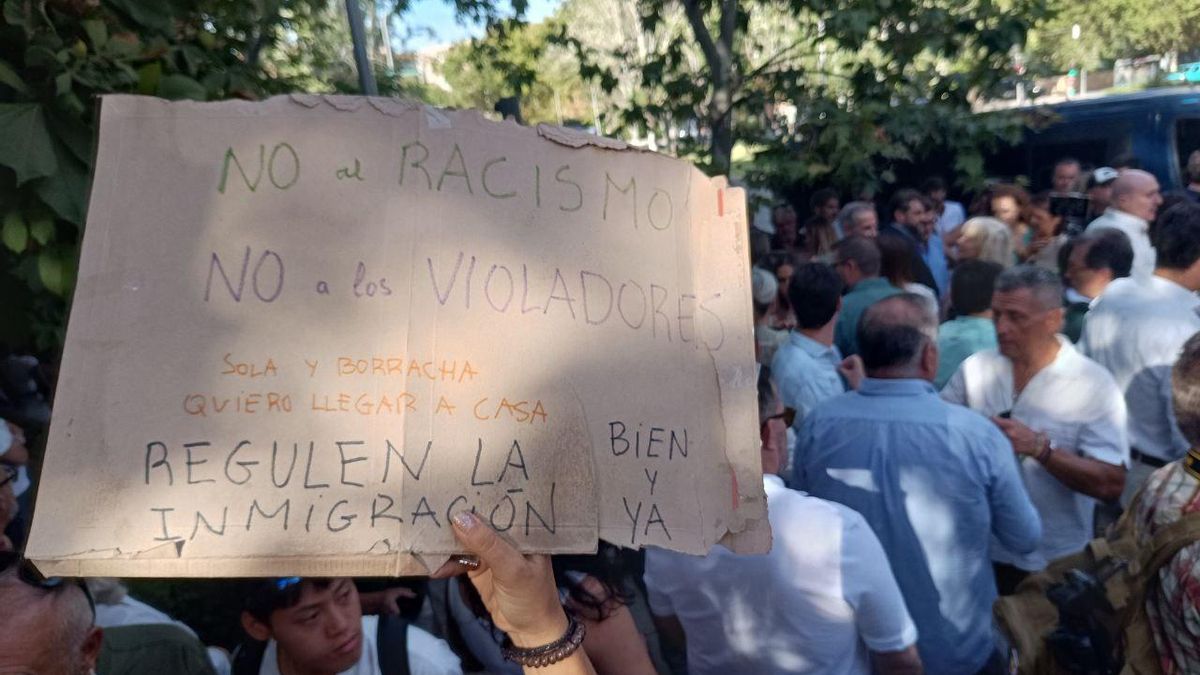 NO al RACISMO
NO a los VIOLADORES
SOLA Y BORRACHA
QUIERO LLEGAR A CASA
REGULEN LA
INMIGRACIÓN
BiEN
Y
YA